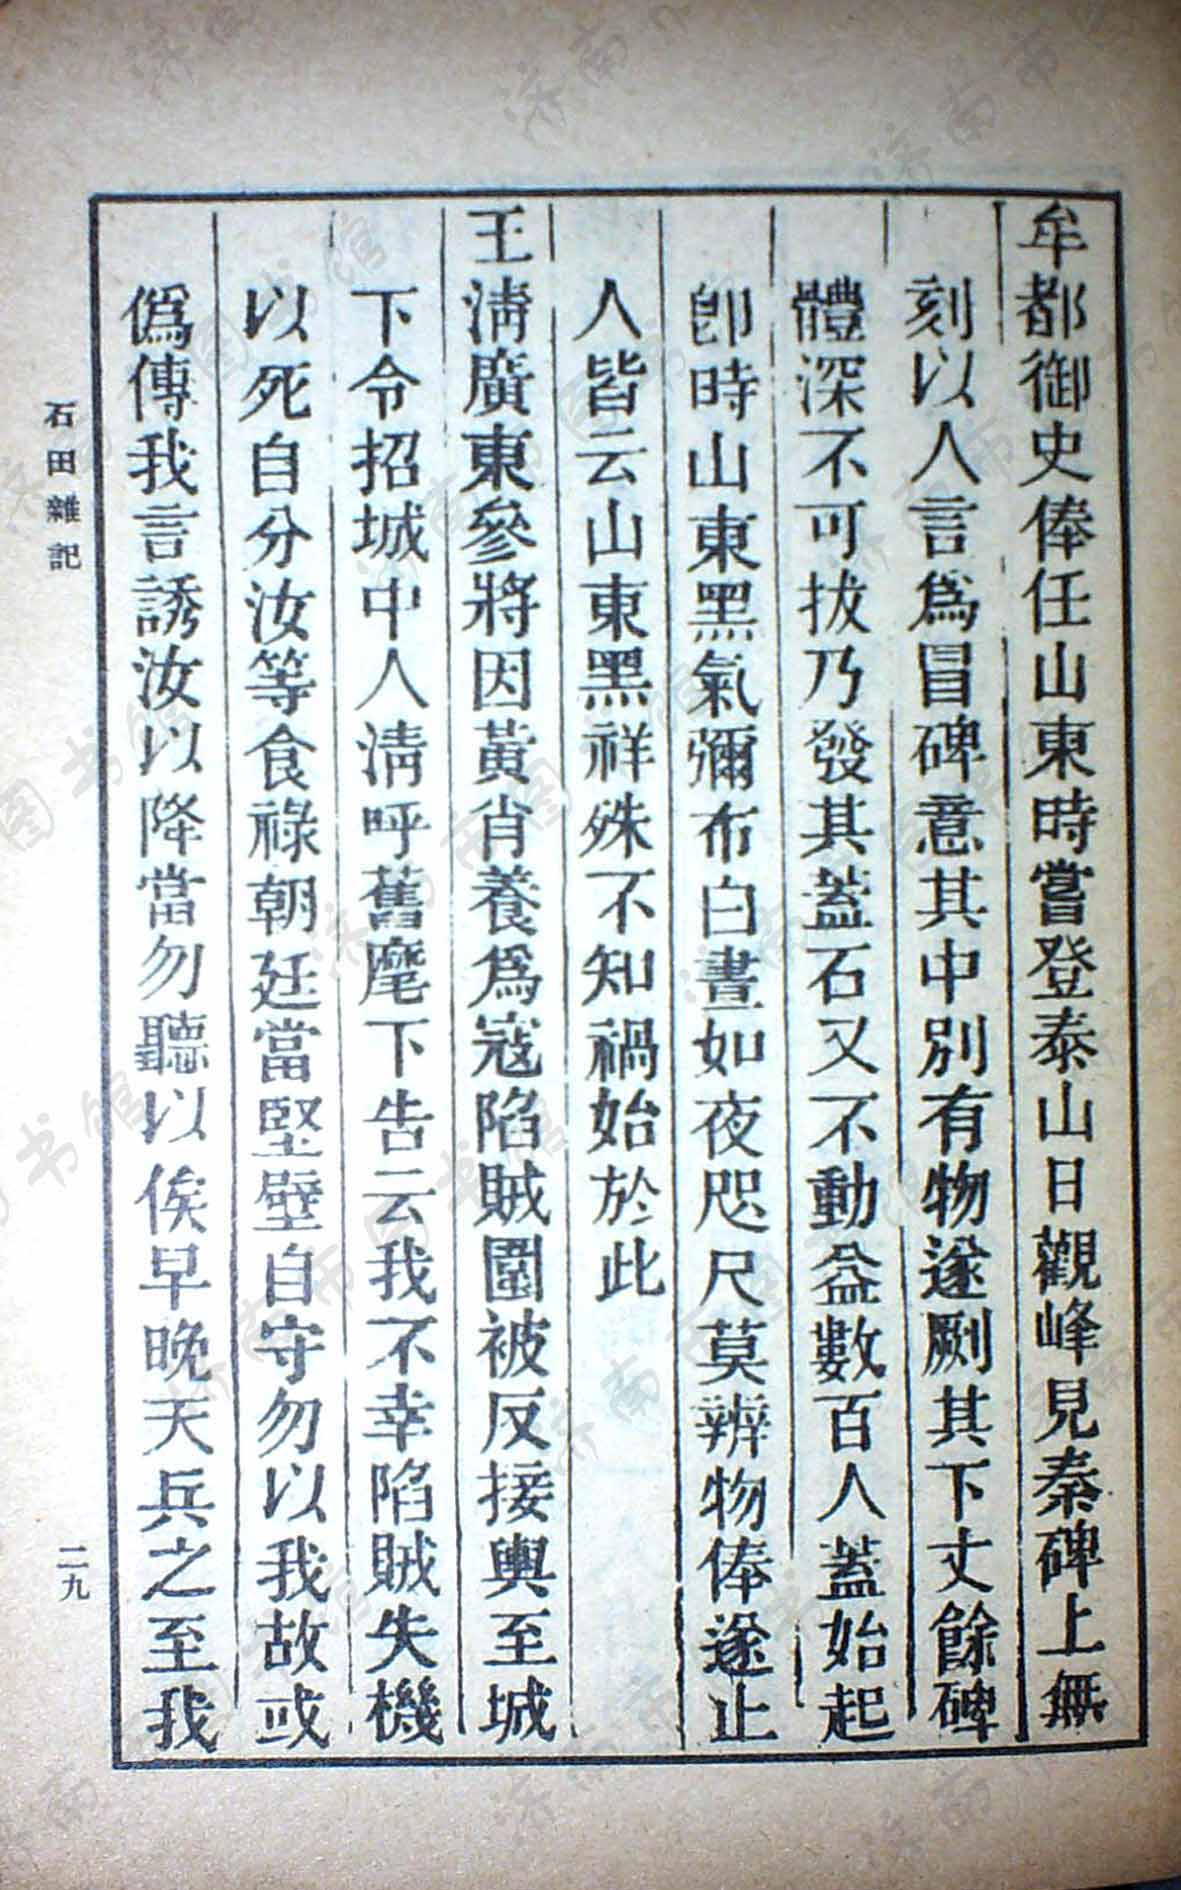 牟都御史俸任山東時嘗登泰山日觀峰見秦碑上無
刻以人言爲冒碑意其中別有物遂劂其下丈餘碑
體深不可拔乃發其蓋石又不動益數百人蓋始起
卽時山東黑氣彌布白晝如夜咫尺莫辨物俸遂止
人皆云山東黑祥殊不知禍始於此
王淸廣東參將因黃肖養爲寇陷賊圍被反接輿至城
下令招城中人淸呼舊麾下告云我不幸陷賊失機
以死自分汝等食祿朝廷當堅壁自守勿以我故或
僞傳我言誘汝以降當勿聽以俟早晚天兵之至我
石田雜記
二九